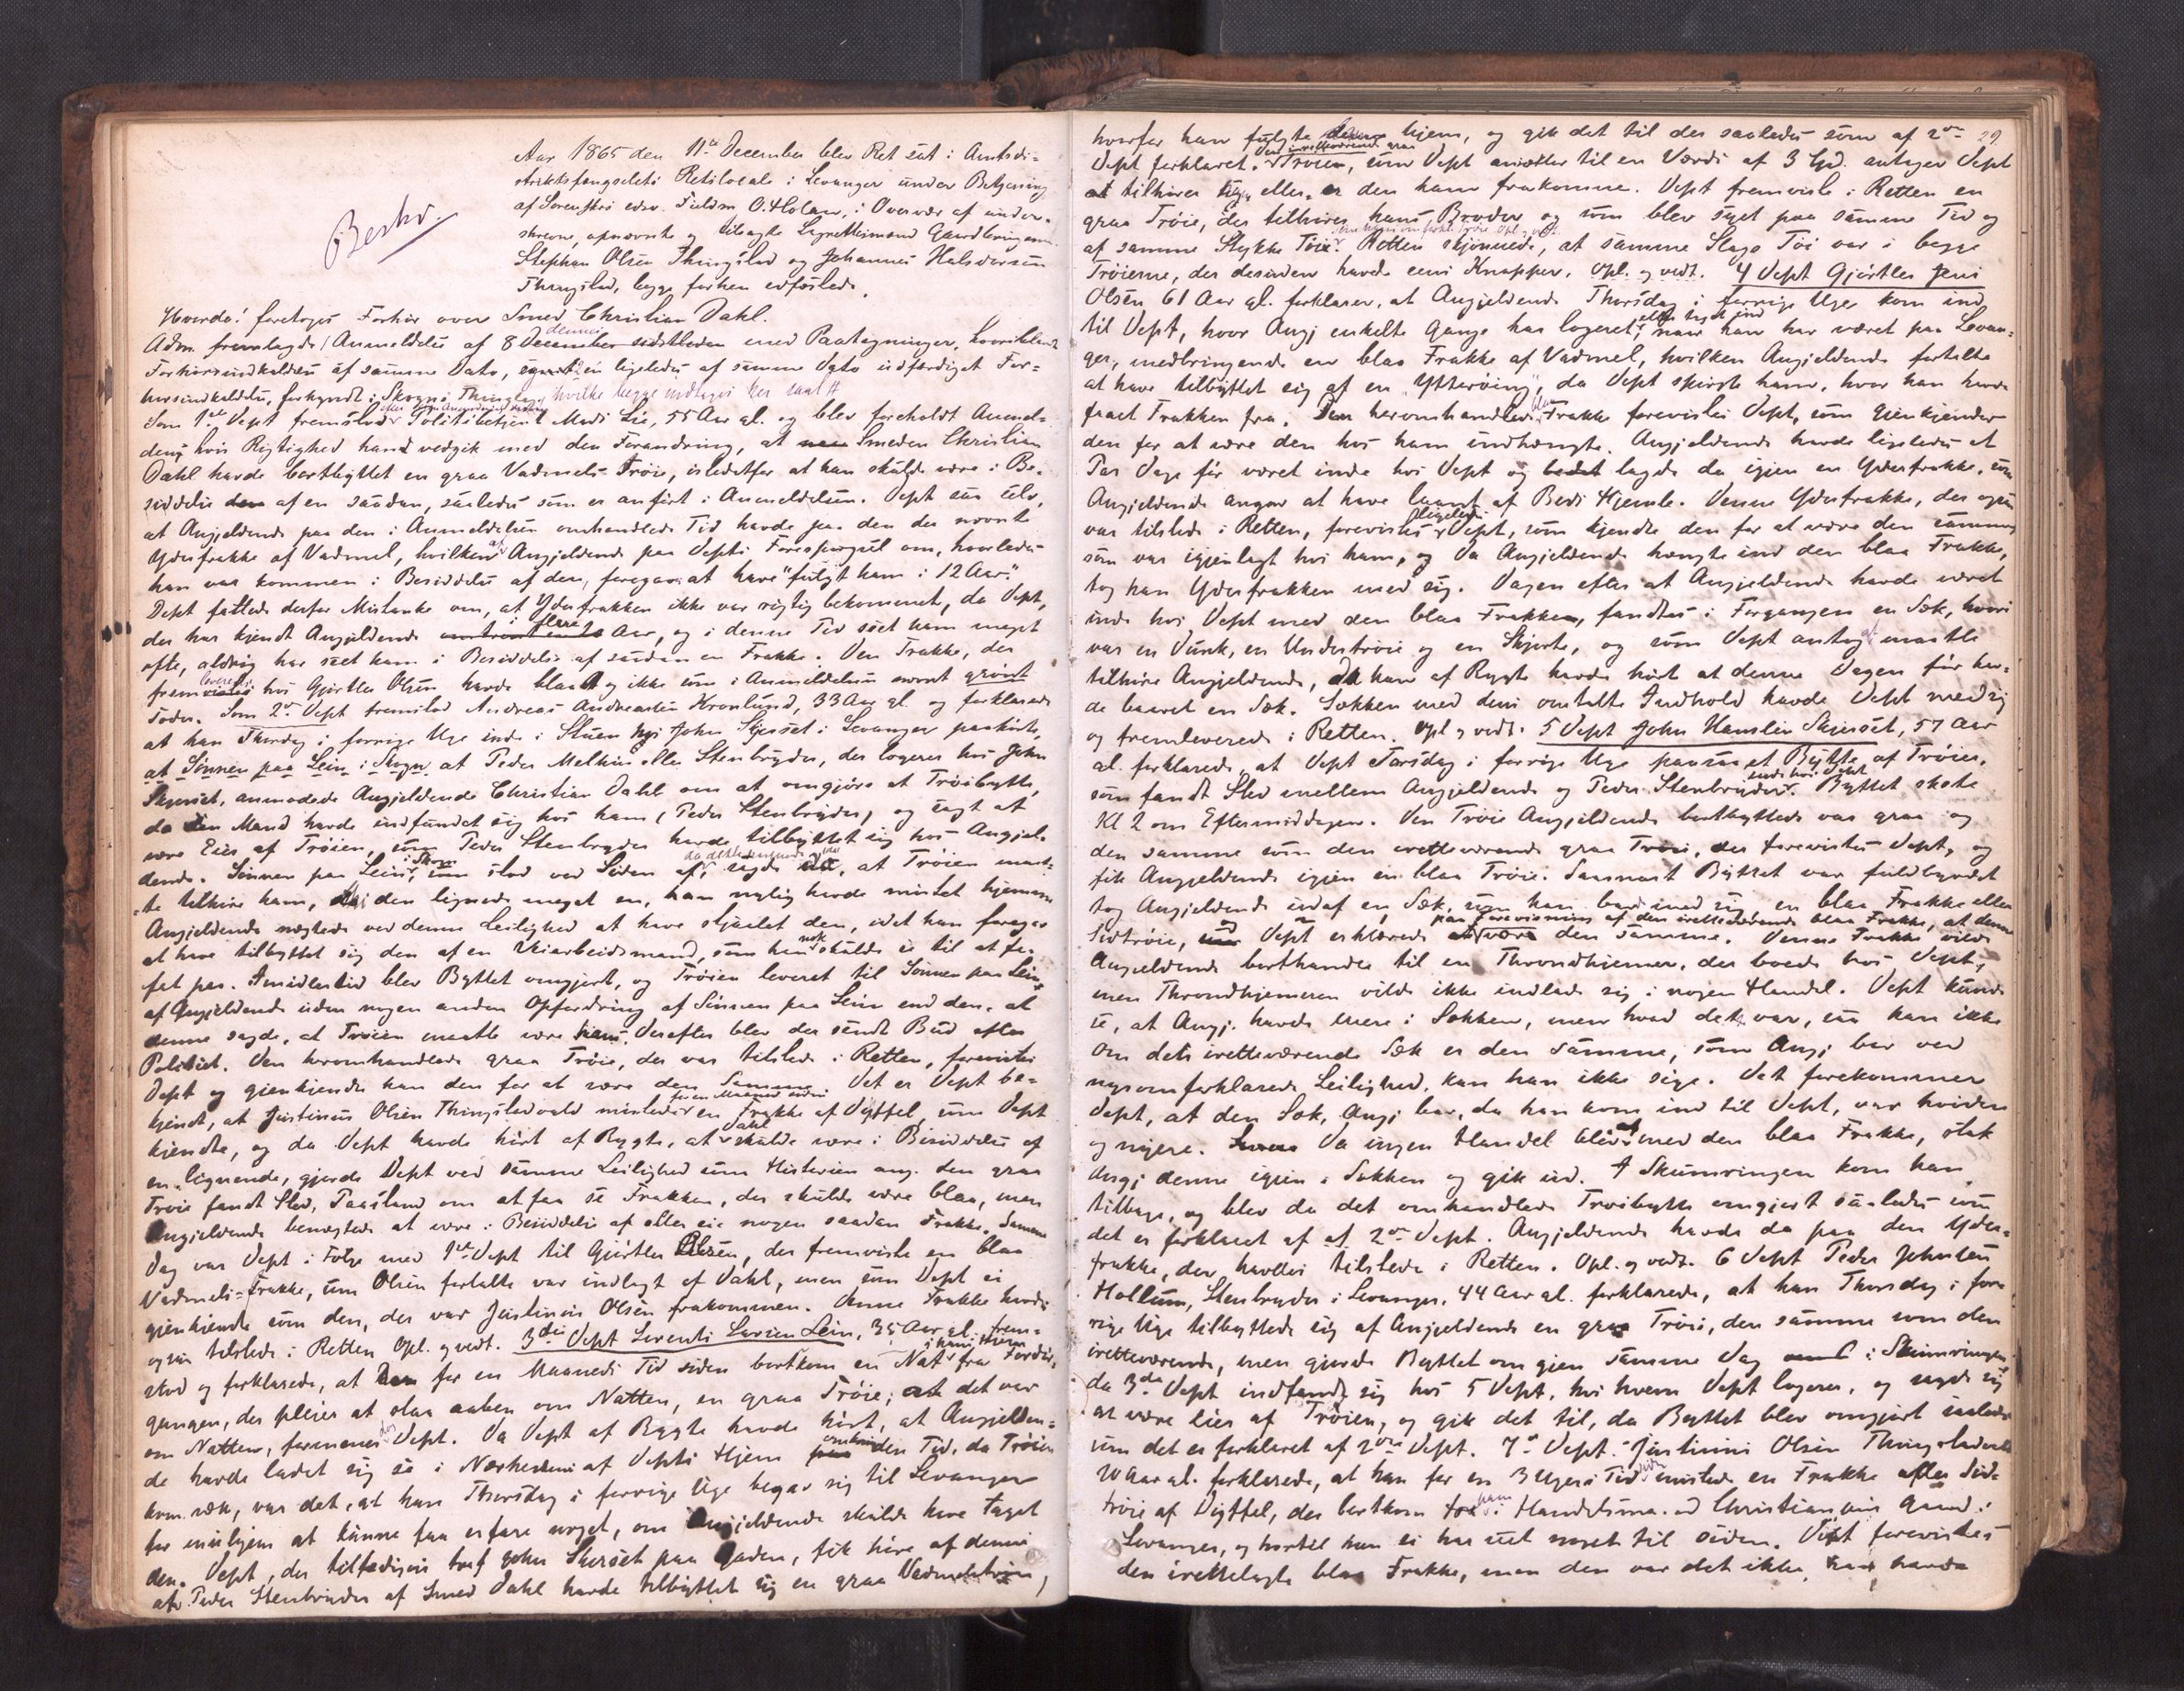 29
Beskr.
Aar 1865 den 11te December blev Ret sat i Amtsdi-
striktsfængselets Retslocale i Levanger under Betjening
af Sorenskri edsv. Fuldm O. Holaar, i Overvær af under-
skrevne, opnævnte og tilsagte Lagrettesmænd Gaardbrugerne
Stephan Olsen Thingstad og Johannes Halvorsen
Thingstad, begge forhen edfæstede.
Hvorda! foretoges Forhør over Smed Christian Dahl.
Adm. fremlagde Anmeldelse af 8 dennes med Paategninger, hvoriblandt
Forhørsindkaldelse af samme Dato, ligeledes af samme Dato udfærdiget For-
hørsindkaldelse, forkyndt i Skogns Thinglag, hvilke begge indtages her saal #
Som 1ste Dept fremstod Politibetjent Mads Lie, 55 Aar gl. og blev foreholdt Anmel-
delsen, hvis Rigtighed han vedgik med den Forandring, at Smeden Christian
Dahl havde bortbyttet en graa Vadmels Trøie, istedetfor at han skulde være i Be-
siddelse af en saadan, saaledes som er anført i Anmeldelsen. Dept saa selv,
at Angjeldende paa den i Anmeldelsen omhandlede Tid havde paa den der nævnte
Yderfrakke af Vadmel, hvilken Angjeldende paa Depts Forespørgsel om, hvorledes
han var kommen i Besiddelse af den, foregav at have "fulgt ham i 12 Aar".
Dept fattede derfor Mistanke om, at Yderfrakken ikke var rigtig bekommet, da Dept,
der har kjendt Angjeldende i flere Aar, og i denne Tid seet ham meget
ofte, aldrig har seet ham i Besiddelse af saadan en Frakke. Den Frakke, der
fremleveredes hos Gjørtler Olsen havde blaat og ikke som i Anmeldelsen nævnt grønt
Foder. Som 2den Dept fremstod Andreas Andreasen Kronlund, 33 Aar gl. og forklarede
at han Thorsdag i forrige Uge inde i Stuen hos John Skjerset i Levanger paahørte,
at Sønnen paa Lein i Skogn at Peder Melhus eller Stenbryder, der logerer hos John
Skjerset, anmodede Angjeldende Christian Dahl om at omgjøre et Trøiebytte,
da den Mand havde indfundet sig hos ham (Peder Stenbryder) og sagt at
være Eier af Trøien, som Peder Stenbryder havde tilbyttet sig hos Angjel-
dende. Sønnen paa Lein i Skogn, som stod ved Siden af, da dette foregik, sagde da, at Trøien maat-
te tilhøre ham, da den lignede meget en, ham nylig havde mistet hjemme
Angjeldende nægtede ved denne Leilighed at have stjaalet den, idet han foregav
at have tilbyttet sig den af en Veiarbeidsmand, som han nok skulde se til at faa
fat paa. Imidlertid blev Byttet omgjort, og Trøien leveret til Sønnen paa Lein
af Angjeldende uden nogen anden Opfordring af Sønnen paa Lein end den, at
denne sagde, at Trøien maatte være hans. Derefter blev der sendt Bud efter
Politiet. Den heromhandlede graa Trøie, der var tilstede i Retten, forevistes
Dept og gjenkjendte han den for at være den Samme. Det er Dept be-
kjendt, at Justinus Olsen Thingstadvald mistede for en Maaned siden en Frakke af Dyffel, som Dept
kjendte, og da Dept havde hørt af Rygte, at Dahl skulde være i Besiddelse af
en lignende, gjorde Dept ved samme Leilighed som Historien ang. den graa
Trøie fandt Sted, Paastand om at faa se Frakken, der skulde være blaa, men
Angjeldende benægtede at være i Besiddelse af eller eie nogen saadan Frakke. Samme
Dag var Dept i Følge med 1ste Dept til Gjørtler Olsen, der fremviste en blaa
Vadmels-Frakke, som Olsen fortalte var indlagt af Dahl, men som Dept ei
gjenkjendte som den, der var Justinus Olsen frakommen. Denne Frakke havdes
ogsaa tilstede i Retten Opl. og vedt. 3die Dept Lorents Larsen Lein, 35 Aar gl. frem-
stod og forklarede, at for en Maaneds Tid siden bortkom en Nat i hans Hjem fra Fordør-
gangen, der pleier at staa aaben om Natten, en graa Trøie; at det var
om Natten, formener dog Dept. Da Dept af Rygte havde hørt, at Angjelden-
de havde ladet sig se i Nærheden af Depts Hjem omkring den Tid, da Trøien
kom væk, var det, at han Thorsdag i forrige Uge begav sig til Levanger
for muligens at kunne faa erfare noget, om Angjeldende skulde have taget
den. Dept, der tilfædigvis traf John Skerset paa Gaden, fik høre af denne
at Peder Stenbryder af Smed Dahl havde tilbyttet sig en graa Vadmelstrøie,
hvorfor han fulgte hjem, og gik det til der saaledes som af 2den
Dept forklaret. Den iretteværende graa Trøien, som Dept ansætter til en Værdi af 3 Spd. antager Dept
at tilhøre sig, eller er den ham frakomne. Dept fremviste i Retten en
graa Trøie, der tilhører hans Broder og som blev syet paa samme Tid og
af samme Stykke Tøi. Retten skjønnede, at samme Slags Tøi var i begge
Trøierne, der desuden havde eens Knapper. Opl. og vedt. 4 Dept Gjørtler Jens
Olsen 61 Aar gl. forklarer, at Angjeldende Thorsdag i forrige Uge kom ind
til Dept, hvor Angj enkelte Gange har logeret, eller tyet ind naar han har været paa Levan-
ger, medbringende en blaa Frakke af Vadmel, hvilken Angjeldende fortalte
at have tilbyttet sig af en "Ytterøing", da Dept spurgte ham, hvor han havde
faaet Frakken fra. Den heromhandlede blaa Frakke forevistes Dept, som gjenkjender
den for at være den hos ham indhængte. Angjeldende havde ligeledes et
Par Dage før været inde hos Dept og lagde da igjen en Yderfrakke, som
Angjeldende angav at have laant af Beds Hjemle. Denne Yderfrakke, der ogsaa
var tilstede i Retten, forevistes ligeledes Dept, som kjendte den for at være den samme
som var igjenlagt hos ham, og da Angjeldende hængte ind den blaa Frakke,
tog han Yderfrakken med sig. Dagen efter at Angjeldende havde været
inde hos Dept med den blaa Frakken, fandtes i Forgangen en Sæk, hvori
var en Dunk, en Undertrøie og en Skjorte, og som Dept antog at maatte
tilhøre Angjeldende, da han af Rygte havde hørt at denne Dagen før hav-
de baaret en Sæk. Sækken med dens omtalte Indhold havde Dept med sig
og fremleverede i Retten. Opl og vedt. 5 Dept John Hansen Skjerset, 57 Aar
gl. forklarede, at Dept Torsdag i forrige Uge paasaa et Bytte af Trøier,
som fandt Sted mellem Angjeldende og Peder Stenbryder inde hos Dept. Byttet skete
Kl 2 om Eftermiddagen. Den Trøie Angjeldende bortbyttede var graa og
den samme som den iretteværende graa Trøie, der forevistes Dept, og
fik Angjeldende igjen en blaa Trøie. Saasnart Byttet var fuldbyrdet
tog Angjeldende udaf en Sæk, som han bar med sig, en blaa Frakke eller
Sidtrøie, og Dept erklærede paa Forevisning af den iretteværende blaa Frakke, at denne være den samme. Denne Frakke vilde
Angjeldende borthandle til en Throndhjemer, der boede hos Dept,
men Throndhjemeren vilde ikke indlade sig i nogen Handel. Dept kunde
se, at Angj. havde mere i Sækken, men hvad det var, saa han ikke
Om dets iretteværende Sæk er den samme, som Angj bar ved
nysomforklarede Leilighed, kan han ikke sige. Det forekommer
Dept, at den Sæk, Angj bar, da han kom ind til Dept, var hvidere
og nyere. Da ingen Handel blev af med den blaa Frakke, stak
Angj denne igjen i Sækken og gik ud. I Skumringen kom han
tilbage, og blev da det omhandlede Trøiebytte omgjort saaledes som
det er forklaret af 2den Dept. Angjeldende havde da paa den Yder-
frakke, der havdes tilstede i Retten. Opl. og vedt. 6 Dept Peder Johnsen
Hallum, Stenbryder i Levanger, 44 Aar gl. forklarede, at han Thorsdag i for-
rige Uge tilbyttede sig af Angjeldende en graa Trøie, den samme som den
iretteværende, men gjorde Byttet om gjen samme Dag i Skumringen
da 3die Dept indfandt sig hos 5 Dept, hos hvem Dept logerer, og sagde sig
at være Eier af Trøien, og gik det til, da Byttet blev omgjort saaledes
som det er forklaret af 2den Dept. 7de Dept. Justinus Olsen Thingstadvald
Aar gl. forklarede, at han for en 3 Ugers Tid siden mistede en Frakke eller Sid-
trøie af Dyffel, der bortkom for ham i Handelsma Christiansens Gaard i
Levanger, og hvortil han ei har seet noget til siden. Dept forevistes
den irettelagte blaa Frakke, men den var det ikke, han havde